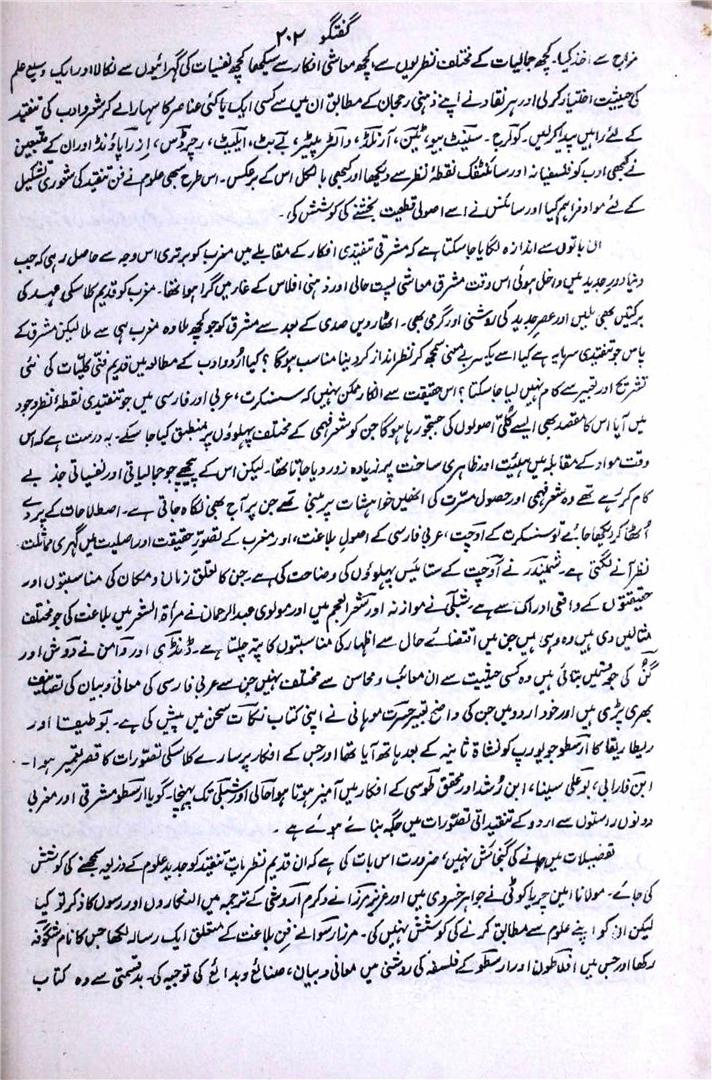 گفتگو ۲۰۲
مزاج سے اخذ کیا۔ کچھ جمالیات کے مختلف نظریوں سے، کچھ معاشی افکار سے سیکھا کچھ نفسیات کی گہرائیوں سے نکالا اور ایک وسیع علم
کی حیثیت اختیار کر لی اور ہر نقاد نے اپنے ذہنی رجحان کے مطابق ان میں سے کسی ایک یا کئی عناصر کا سہارا لے کر شعر و ادب کی تنقید
کے لئے راہیں پیدا کر لیں۔ کولرج۔ سینٹ بیو، ٹین، آرنلڈ، والٹر پیٹر، بے بٹ، ایلیٹ، رچرڈس، ازرا پاؤنڈ اور ان کے متبعین
نے کبھی ادب کو فلسفیانہ اور سائنٹفک نقطۂ نظر سے دیکھا اور کبھی بالکل اس کے برعکس۔ اس طرح سبھی علوم نے فن تنقید کی شعوری تشکیل
کے لئے مواد فراہم کیا اور سائنس نے اسے اصولی قطعیت بخشنے کی کوشش کی۔
ان باتوں سے اندازہ لگایا جا سکتا ہے کہ مشرقی تنقیدی افکار کے مقابلے میں مغرب کو برتری اس وجہ سے حاصل رہی کہ جب
دنیا دور جدید میں داخل ہوئی اس وقت مشرق معاشی پست حالی اور ذہنی افلاس کے غار میں گرا ہوا تھا۔ مغرب کو قدیم کلاسکی عہد کی
برکتیں بھی ملیں اور عصر جدید کی روشنی اور گرمی بھی۔ اٹھارویں صدی کے بعد سے مشرق کو جو کچھ ملا وہ مغرب ہی سے ملا لیکن مشرق کے
پاس جو تنقیدی سرمایہ ہے کیا اسے یکسر بے معنی سمجھ کر نظر انداز کر دینا مناسب ہوگا؟ کیا اردو ادب کے مطالعہ میں قدیم فنی کلیات کی نئی
تشریح اور تعبیر سے کام نہیں لیا جا سکتا؟ اس حقیقت سے انکار ممکن نہیں کہ سنسکرت، عربی اور فارسی میں جو تنقیدی نقطۂ نظر وجود
میں آیا اس کا مقصد بھی ایسے کُلی اصولوں کی جستجو رہا ہوگا جن کو شعر فہمی کے مختلف پہلوؤں پر منطبق کیا جا سکے۔ یہ درست ہے کہ اس
وقت مواد کے مقابلہ میں ہیئت اور ظاہری ساخت پر زیادہ زور دیا جاتا تھا۔ لیکن اس کے پیچھے جو جمالیاتی اور نفسیاتی جذبے
کام کر رہے تھے وہ شعر فہمی اور حصول مسرت کی انھیں خواہشات پر مبنی تھے جن پر آج بھی نگاہ جاتی ہے۔ اصطلاحات کے پردے
اُٹھا کر دیکھا جائے تو سنسکرت کے اوچت، عربی فارسی کے اصول بلاغت، اور مغرب کے تصور حقیقت اور اصلیت میں گہری مماثلت
نظر آنے لگتی ہے۔ شمیندر نے اوچت کے ستائیس پہلوؤں کی وضاحت کی ہے۔ جن کا تعلق زمان و مکان کی مناسبتوں اور
حقیقتوں کے واقعی ادراک سے ہے۔ شبلی نے موازنہ اور شعر العجم میں اور مولوی عبدالرحمان نے مرأۃ الشعر میں بلاغت کی جو مختلف
مثالیں دی ہیں وہ وہی ہیں جن میں اقتضائے حال سے اظہار کی مناسبتوں کا پتہ چلتا ہے۔ ڈنڈی اور وامن نے دوش اور
گن کی جو قسمیں بتائی ہیں وہ کسی حیثیت سے ان معائب و محاسن سے مختلف نہیں جن سے عربی فارسی کی معانی و بیان کی تصانیف
بھری پڑی ہیں اور خود اردو میں جن کی واضح تعبیر حسرت موہانی نے اپنی کتاب نکات سخن میں پیش کی ہے۔ بوطیقا اور
ریطاریقا کا ارسطو جو یورپ کو نشاۃ ثانیہ کے بعد ہاتھ آیا تھا اور جس کے افکار پر سارے کلاسکی تصورات کا قصر تعمیر ہوا۔
ابن فارابی، بو علی سینا، ابن رُشد اور محقق طوسی کے افکار میں آمیز ہوتا ہوا حالی اور شبلی تک پہنچا۔ گویا ارسطو مشرقی اور مغربی
دونوں راستوں سے اردو کے تنقیداتی تصورات میں جگہ بنائے ہوئے ہے۔
تفصیلات میں جانے کی گنجائش نہیں، ضرورت اس بات کی ہے کہ ان قدیم نظریات تنقید کو جدید علوم کے ذریعہ سمجھنے کی کوشش
کی جائے۔ مولانا امین چریاکوٹی نے جواہر خسروی میں اور عزیز مرزا نے وکرم اروشی کے ترجمہ میں النکاروں اور رسوں کا ذکر تو کیا
لیکن ان کو اپنے علوم سے مطابق کرنے کی کوشش نہیں کی۔ مرزا رسوا نے فن بلاغت کے متعلق ایک رسالہ لکھا جس کا نام شگوفہ
رکھا اور جس میں افلاطون اور ارسطو کے فلسفہ کی روشنی میں معانی و بیان، صنائع و بدائع کی توجیہ کی۔ بد قسمتی سے وہ کتاب